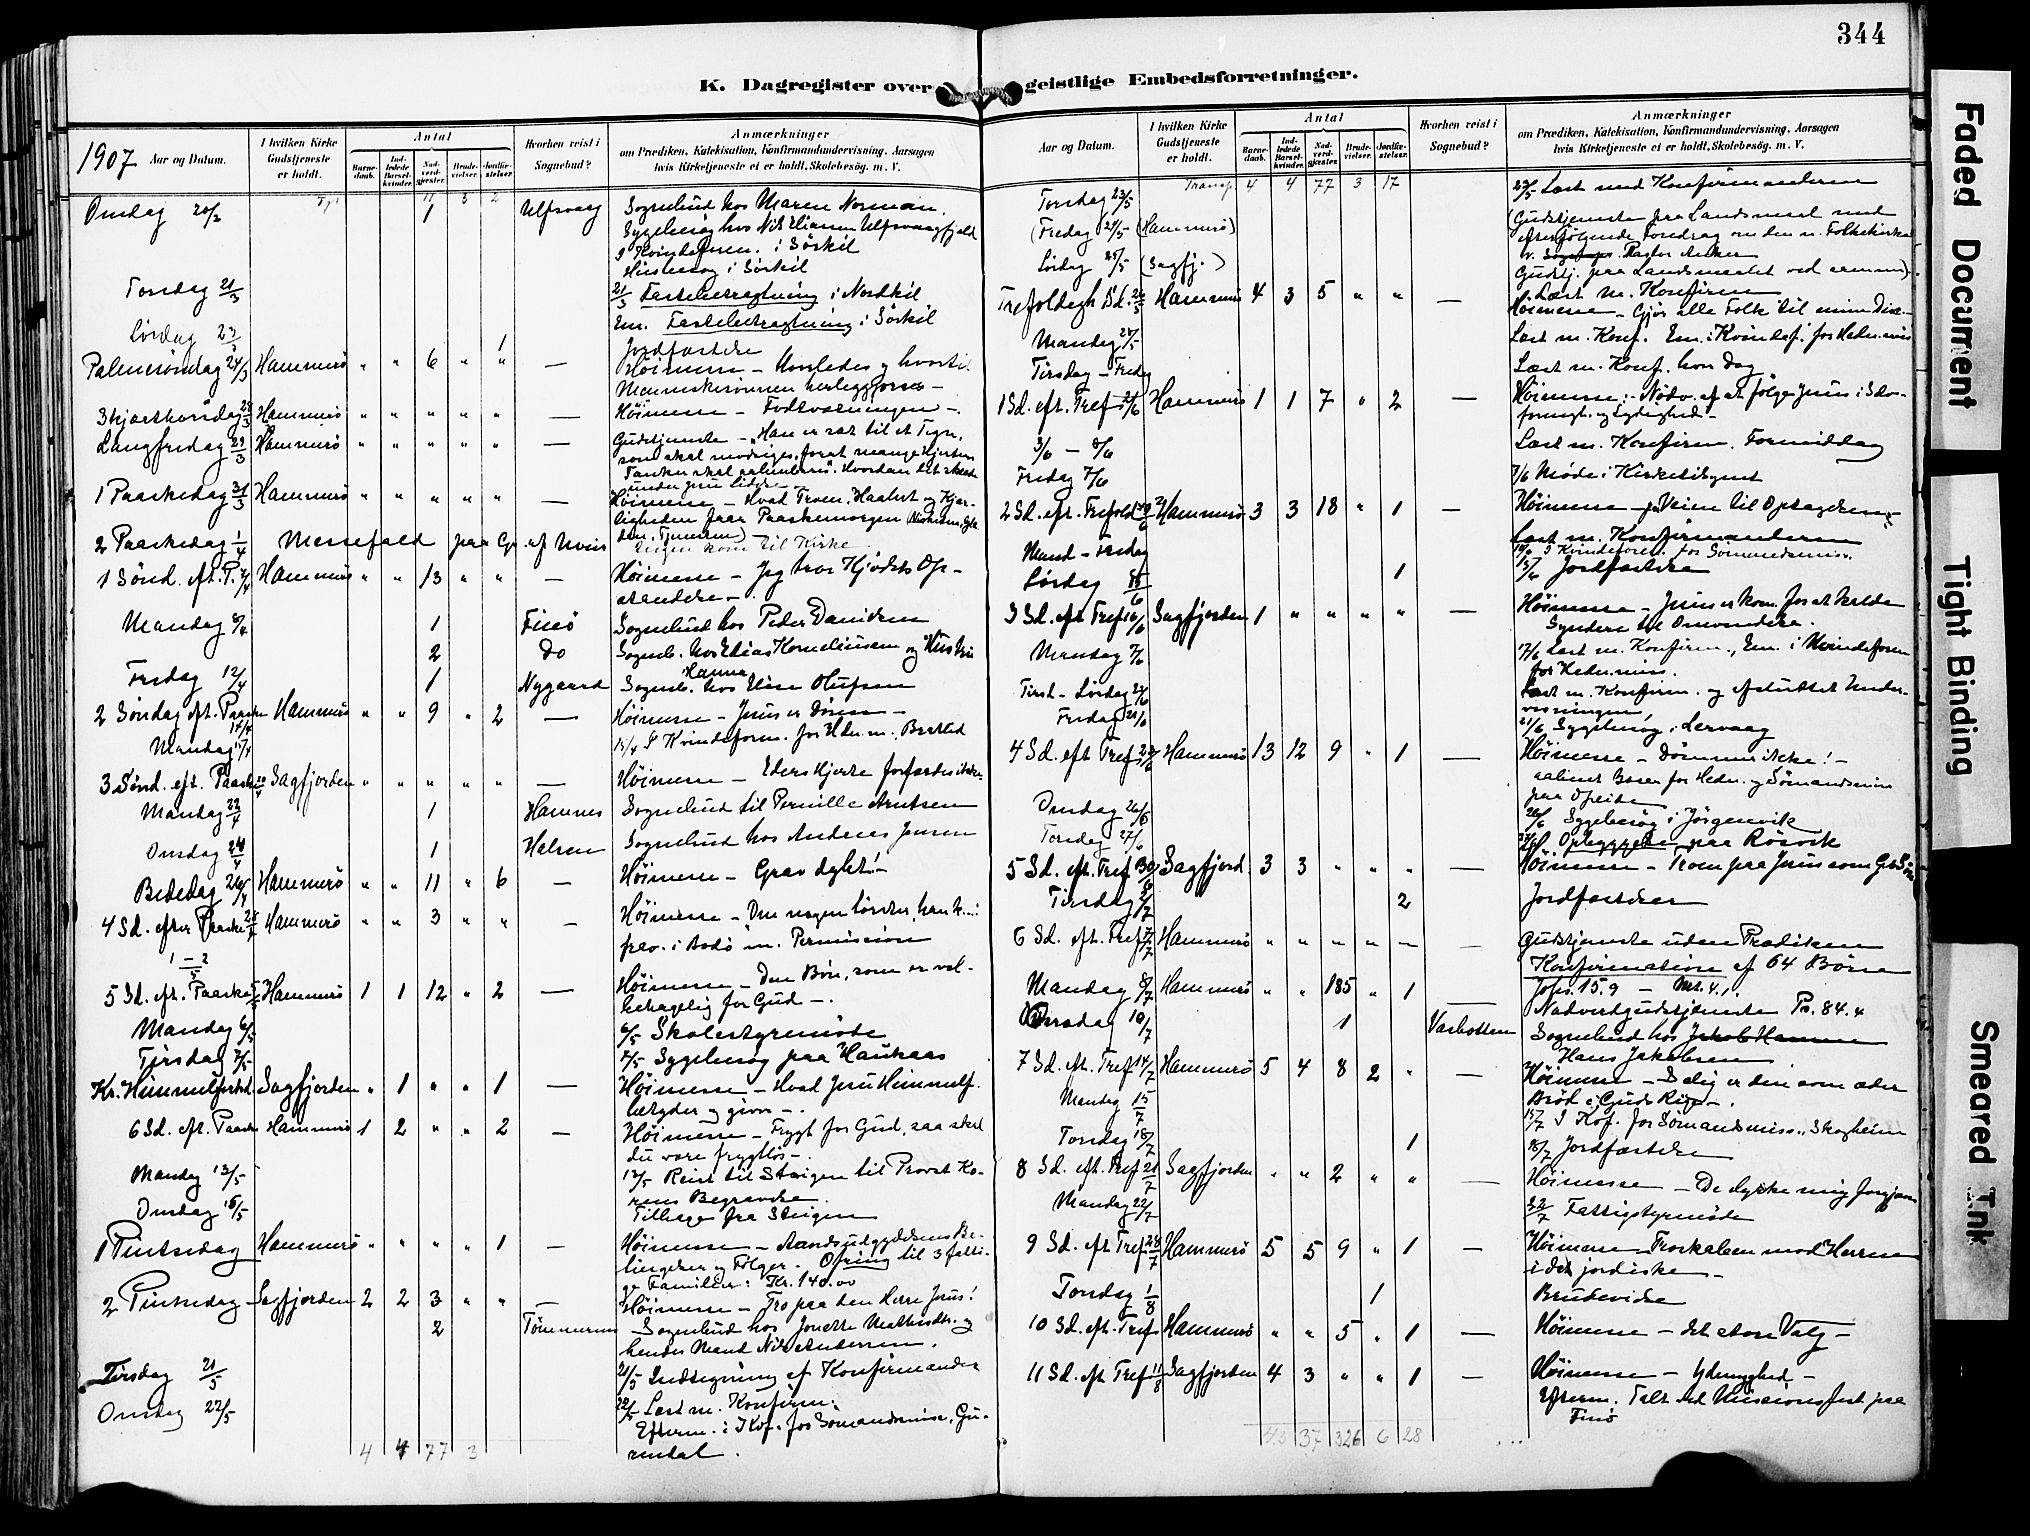 344
K. Dagregister over geistlige Embedsforretninger.
1907 Aar og Datum.
I hvilken Kirke Gudstjeneste er holdt.
Antal
Barnedaab.
Indledede Barselkvinder.
Nadverdgjester.
Brudevielser.
Jordfæstelser.
Hvorhen reist i Sognebud?
Anmærkninger
om Prædiken, Katekisation, Konfirmandundervisning, Aarsagen
hvis Kirketjeneste ei er holdt, Skolebesøg. m. V.
Onsdag 20/3 1 Ulfsvaag Sognebud hos Maren Norman.
Sygebesøg hos Nils Eliassen Ulfsvaagfjeld
I Kvindeforen. i Sørkil
Husbesøg i Sørkil
Torsdag 21/3 21/3 Fastebetragtning i Nordkil
Em. Fastebetragtning i Sørkil
Lørdag 23/3 1 Jordfæstelse
Palmesøndag 24/3 Hammerø " " 6 " " — Høimesse — Hvorledes og hvortil
Menneskesønnen herliggjøres —
Skjærthorsdag 28/3 Hammerø " " " " " — Høimesse — Fodtvætningen —
Langfredag 29/3 Hammerø " " " " " — Gudstjeneste — "Han er sat til et Tegn,
som skal modsiges, forat mange Hjerters
Tanker skal aabenbares". Hvordan det skede
under Jesu Lidelse
1 Paaskedag 31/3 Hammerø " " " " " — Høimesse — Hvad Troen, Haabet og Kjær-
ligheden faar Paaskemorgen
2 Paaskedag 1/4 Messefald paa Gr. af Uveir
Ingen kom til Kirke
1 Sønd. eft. P. 7/4 Hammerø " " 13 " " — Høimesse — Jeg tror Kjødets Op-
standelse —
Mandag 8/4 1 Finø Sognebud hos Peder Danielsen
2 Do Sogneb. hos Elias Korneliussen og Hustru
Fredag 12/4 1 Nygaard Sogneb. hos Hanna Olufsen
2 Søndag eft. Paaske 14/4 Hammerø " " 9 " 2 — Høimesse — Jesus er Døren —
Mandag 15/4 15/4 I Kvindeforen. for Hedn. m.
3 Sønd. eft. Paaske 21/4 Sagfjorden " " " " " — Høimesse — Eders Hjerte forfærdes ikke
Mandag 22/4 1 Hamnes Sognebud til Pernille Arntsen
Onsdag 24/4 1 Helsen Sognebud hos Andreas Jensen
Bededag 26/4 Hammerø " " 11 " 6 — Høimesse — Grav dybt! —
4 Sd. efter Paaske 28/4 Hammerø " " 3 " " — Høimesse — Den nogen tørster, han k...:
præv. i Bodø m. Permission
1 — 2/5
5 Sd. eft. Paaske 5/5 Hammerø 1 1 12 " 2 — Høimesse — Den Bøn, som er vel-
behagelig for Gud —.
Mandag 6/5 6/5 Skolestyremøde
Tirsdag 7/5 7/5 Sygebesøg paa Haukaas
Kr. Himmelfartsd. Sagfjorden " 1 " " 1 — Høimesse — Hvad Jesu Himmelf.
betyder og giver —.
6 Sd. eft. Paaske Hammerø 1 2 " " 2 — Høimesse — Frygt for Gud, saa skal
du være frygtløs —.
Mandag 13/5 13/5 Reist til Steigen til Provst Ko-
rens Begravelse.
Onsdag 15/5 Tilbage fra Steigen
1 Pintsedag Hammerø " " " " 1 — Høimesse — Aandsudgydelsens Be-
tingelser og Følger. Ofring til 3 fatti-
ge Familier: Kr. 140.00
2 Pintsedag Sagfjorden 2 2 3 " " — Høimesse — Tro paa den Herre Jesus!
2 Tømmernes Sognebud hos Jonette Mathisdtr. og
hendes Mand Nils Andersen.
Tirsdag 21/5 21/5 Indtegning af Konfirmander
Onsdag 22/5 22/5 Læst m. Konfirm.
Efterm. i Kvf. for Sømandsmiss.
4 4 77 3
Aar og Datum.
I hvilken Kirke Gudstjeneste er holdt.
Antal
Barnedaab.
Indledede Barselkvinder.
Nadverdgjester.
Brudevielser.
Jordfæstelser.
Hvorhen reist i Sognebud?
Anmærkninger
om Prædiken, Katekisation, Konfirmandundervisning, Aarsagen
hvis Kirketjeneste ei er holdt, Skolebesøg. m. V.
Transp. 4 4 77 3 17
Torsdag 23/5 23/5 Læst med Konfirmanderne
(Fredag 24/5 (Hammerø) (Gudstjeneste fra Landsmaal med
efterfølgende Foredrag om den n. Folkekirke
Lørdag 25/5 (Sagfj.) v. Pastor Anker
Gudstj. paa Landsmaalet ved samme).
Læst m. Konfirm
Trefoldigh. Sd. 26/5 Hammerø 4 3 5 " " — Høimesse — Gjør alle Folk til mine Disc.
Mandag 27/5 Læst m. Konf. Em. i Kvindef. for Hedn.mis
Tirsdag — Fredag Læst m. Konf. hver Dag
1 Sd. eft. Tref. 2/6 Hammerø 1 1 7 " 2 — Høimesse: — Nødv. af at følge Jesus i Selv-
fornegt. og Lydighed —
3/6 — 8/6 Læst m. Konfirm. Formiddag
Fredag 7/6 7/6 Møde i Kirketilsynet
2 Sd. eft. Trefold. 9/6 Hammerø 3 3 18 " 1 — Høimesse — Veien til Opvaagnen
Mand — Fredag Læst m. Konfirmanderne
I Kvindeforen. for Sømandsmis.
Lørdag 15/6 1 15/6 Jordfæstelse
3 Sd. eft Tref. 16/6 Sagfjorden 1 " " " " — Høimesse — Jesus er kom. for at kalde
Syndere til Omvendelse.
Mandag 17/6 17/6 Læst m. Konfirm., Em. i Kvindeforen
for Hedn.miss.
Tirsd — Lørdag 22/6 Læst m. Konfirm. og afsluttet Under-
visningen
Fredag 21/6 21/6 Sygebesøg i Lervaag
4 Sd. eft Tref. 23/6 Hammerø 13 12 9 " 1 — Høimesse — Dømmer ikke! —
aabnet Basar for Hedn. og Sømandsmiss
paa Opeide
Onsdag 26/6 26/6 Sygebesøg i Jørgenvik
Torsdag 27/6 27/6 Opbyggelse paa Røsvik
5 Sd. eft. Tref. 30/6 Sagfjord. 3 3 " " " — Høimesse — Troen paa Jesus som Guds Søn
Tirsdag 2/7 2 Jordfæstelser
6 Sd. eft. Tref 7/7 Hammerø " " " " — — Gudstjeneste uden Prædiken
Konfirmation af 64 Børn
Mandag 8/7 Hammerø " " 185 " 1 — Joh. 15.9 — Mt. 4.1.
Nadverdgudstjeneste Ps. 84.4
Onsdag 10/7 1 Varbotten Sognebud hos Jakob Hansen
Hans Jakobsen
7 Sd. eft. Tref. 14/7 Hammerø 5 4 8 2 " — Høimesse — Salig er den som æder
Brød i Guds Rige —.
Mandag 15/7 15/7 I Kvf. for Sømandsmiss., Skogheim
Torsdag 18/7 1 18/7 Jordfæstelse
8 Sd. eft. Tref 21/7 Sagfjorden " " 2 " " — Høimesse — De dyrke mig forgjæves
Mandag 22/7 22/7 Fattigstyremøde
9 Sd. eft Tref. 28/7 Hammerø 5 5 9 " 1 — Høimesse Troskaben mod Herren
i det jordiske —
Torsdag 1/8 1 Brudevielse
10 Sd. eft. Tref Hammerø " " 5 " 1 — Høimesse — det store Valg —
11 Sd. eft Tref. 11/8 Sagfjorden 4 3 " " 1 — Høimesse — Ydmyghed —
Efterm. Talt ved Missionsfest paa
Finø
43 37 326 6 28
Faded Document
Tight Binding
Smeared Ink